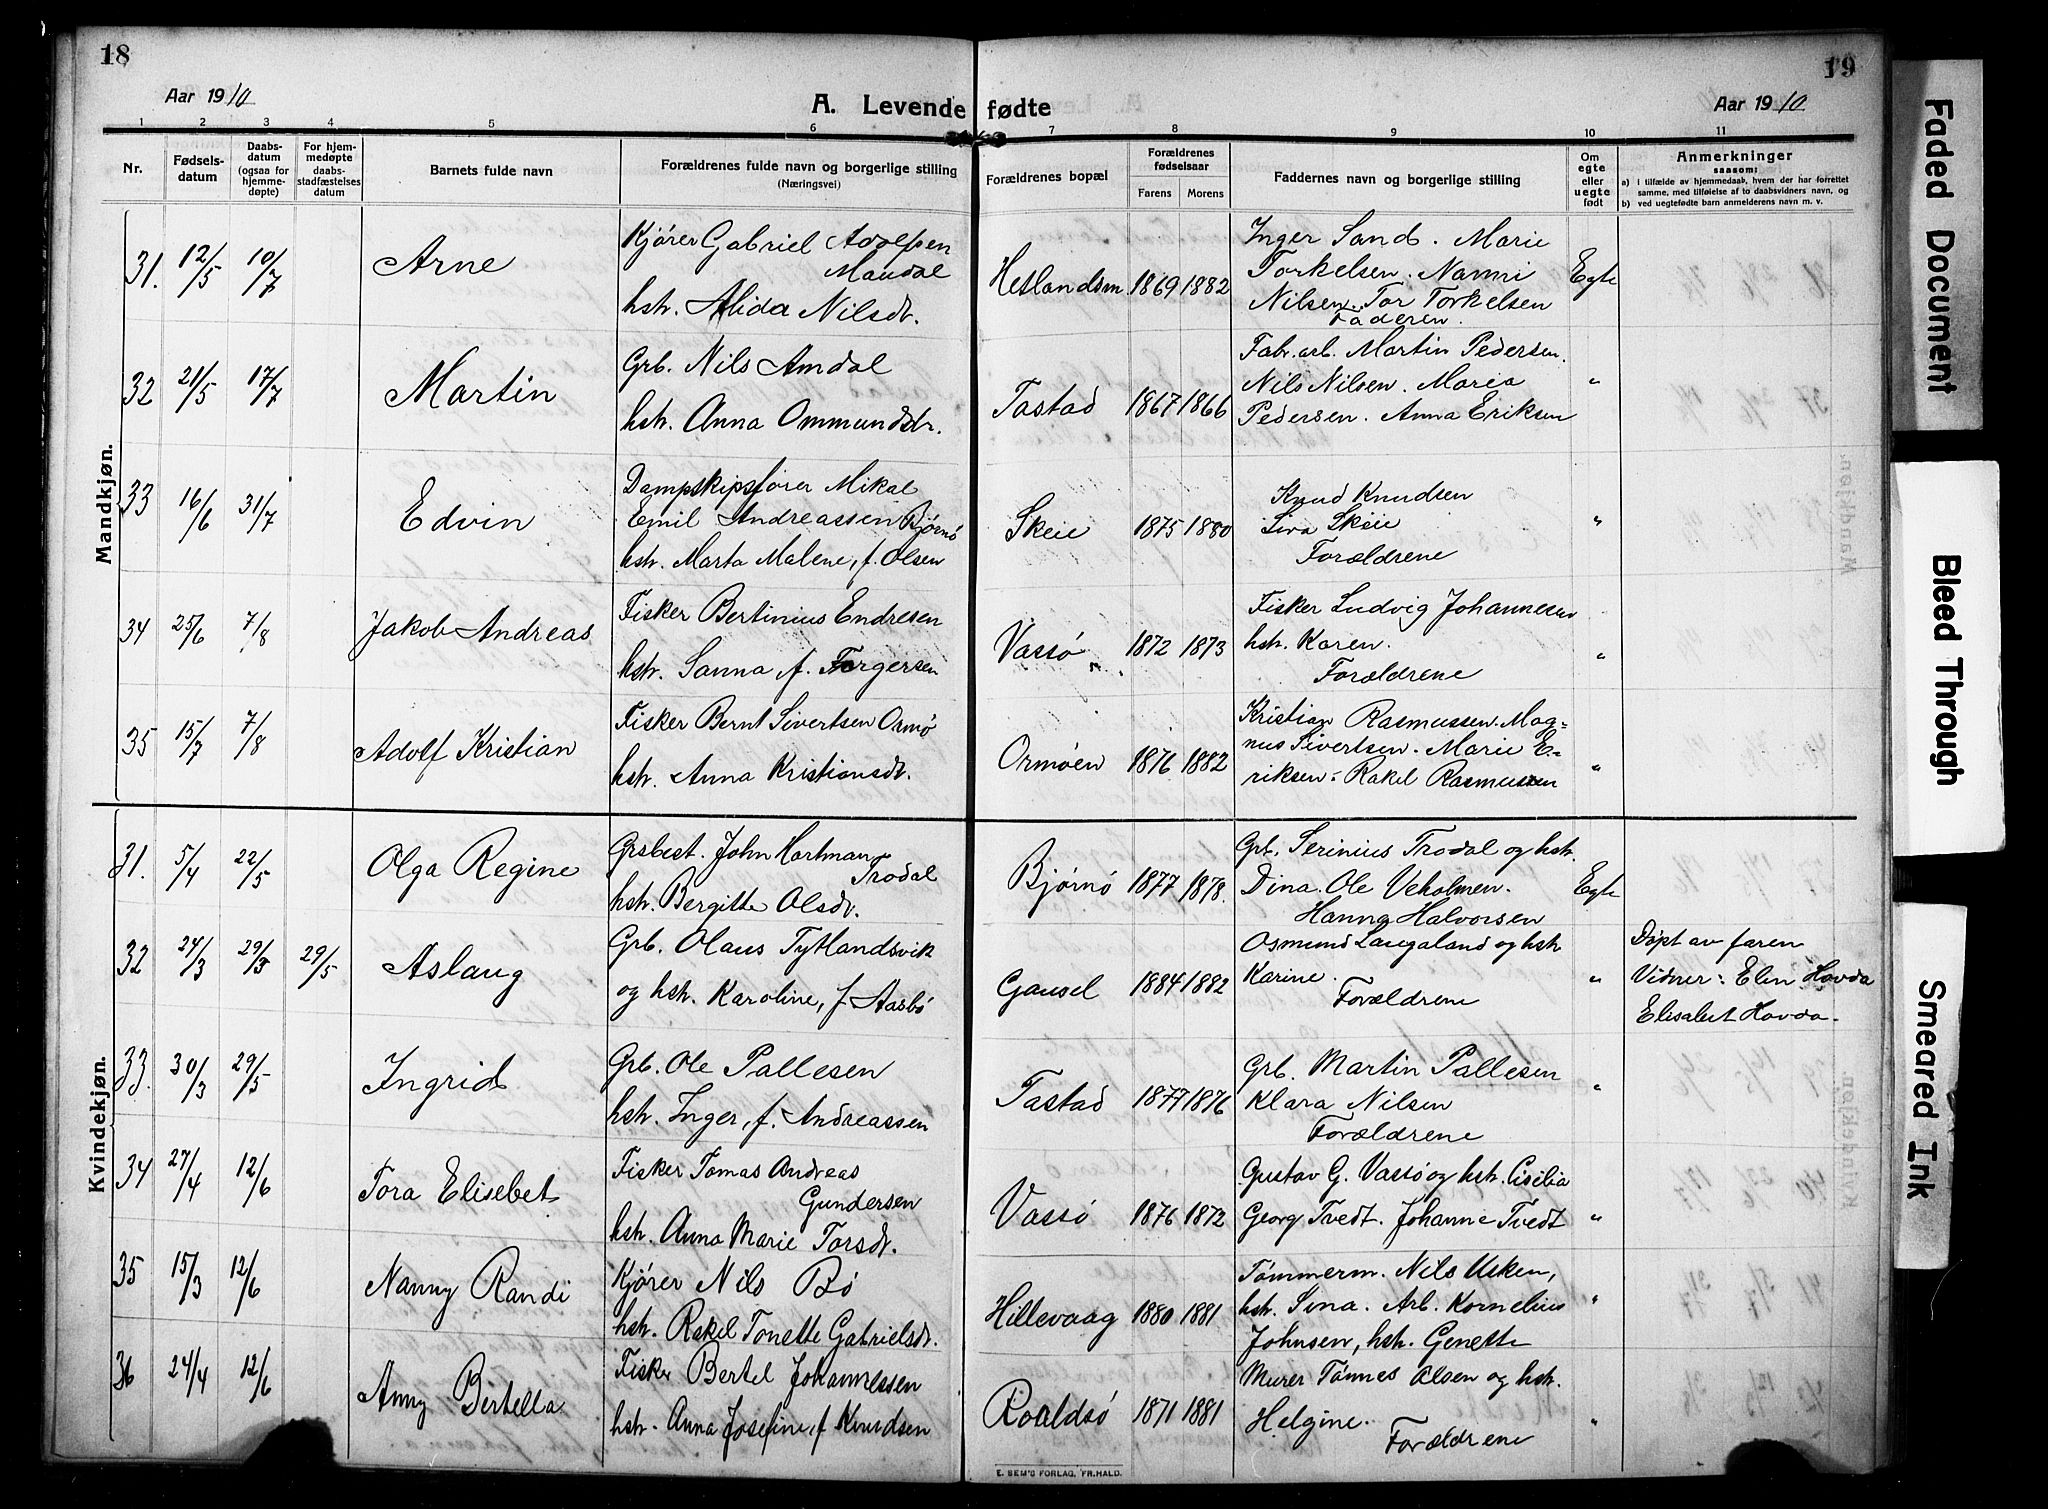 18
19
Aar 1910
A. Levende fødte
Aar 1910
1 2 3 4 5 6 7 8 9 10 11
Nr.
Fødsels-
datum
Daabs-
datum
(ogsaa for
hjemme-
døpte)
For hjem-
medøpte
daabs-
stadfæstelses
datum
Barnets fulde navn
Forældrenes fulde navn og borgerlige stilling
(Næringsvei)
Forældrenes bopæl
Forældrenes
fødselsaar
Farens Morens
Faddernes navn og borgerlige stilling
Om
egte
eller
uegte
født
Anmerkninger
saasom:
a) i tilfælde av hjemmedaab, hvem der har forrettet
samme, med tilføielse af to daabsvidners navn, og
b) ved uegtefødte barn anmelderens navn m. v.
Mandkjøn.
31. 12/5 10/7 Arne
Kjører Gabriel Adolfsen
Maudal
hstr. Alida Nilsdt.
Hetlandsm 1869 1882
Inger Sand. Marie
Torkelsen. Nanni
Nilsen. Tor Torkelsen
Faderen.
Egte
32 21/5 17/7 Martin
Grb. Nils Amdal
hstr. Anna Ommundsdr.
Tastad 1867 1866
Fabr. arb. Martin Pedersen.
Nils Nilsen. Maria
Pedersen. Anna Eriksen
"
33 16/6 31/7 Edvin
Dampskipsfører Mikal
Emil Andreassen Bjørnø
hstr. Marta Malene, f. Olsen
Skeie 1875 1880
Knud Knudsen
Siva Skeie
Forældrene
"
34 25/6 7/8 Jakob Andreas
Fisker Bertinius Endresen
hstr. Sanna f. Torgersen
Vassø 1872 1873
Fisker Ludvig Johannesen
hstr. Karen.
Forældrene
"
35 15/7 7/8 Adolf Kristian
Fisker Bernt Sivertsen Ormø
hstr. Anna Kristiansdt.
Ormøen 1876 1882
Kristian Rasmussen. Mag-
nus Sivertsen. Marie E-
riksen. Rakel Rasmussen
"
Kvindekjøn.
31. 5/4 22/5 Olga Regine
Grbbest. John Hartman
Trodal
hstr. Bergitte Olsdt.
Bjørnø 1877 1878.
Grb. Serinius Trodal og hstr.
Dina. Ole Veholmen.
Hanna Halvorsen
Egte
32 24/3 29/3 29/5 Aslaug
Grb. Olaus Tytlandsvik
og hstr. Karoline, f. Aasbø
Gausel 1884 1882
Osmund Laugaland og hstr
Karine.
Forældrene
"
Døpt av faren
Vidner: Elen Hovda
Elisabet Hovda.
33. 30/3 29/5 Ingrid
Grb. Ole Pallesen
hstr. Inger, f. Andreassen
Tastad 1877 1876
Grb. Martin Pallesen
Klara Nilsen
Forældrene
"
34 27/4 12/6 Tora Elisebet
Fisker Tomas Andreas
Gundersen
hstr. Anna Marie Torsdt.
Vassø 1876 1872
Gustav G. Vassø og hstr. Cisilia
Georg Tvedt. Johanne Tvedt
"
35 15/3 12/6 Nanny Randi
Kjører Nils Bø
hstr. Rakel Tonette Gabrielsdt.
Hillevaag 1880 1881
Tømmerm. Nils Usken,
hstr. Sina. Arb. Kornelius
Johnsen, hstr. Genette
"
36 24/4 12/6 Anny Bertella
Fisker Bertel Johannessen
hstr. Anna Josefine, f Knudsen
Roaldsø 1871 1881
Murer Tønnes Olsen og hstr.
Helgine.
Forældrene
"
E. SEM'S FORLAG, FR.HALD.
Faded Document
Bleed Through
Smeared Ink